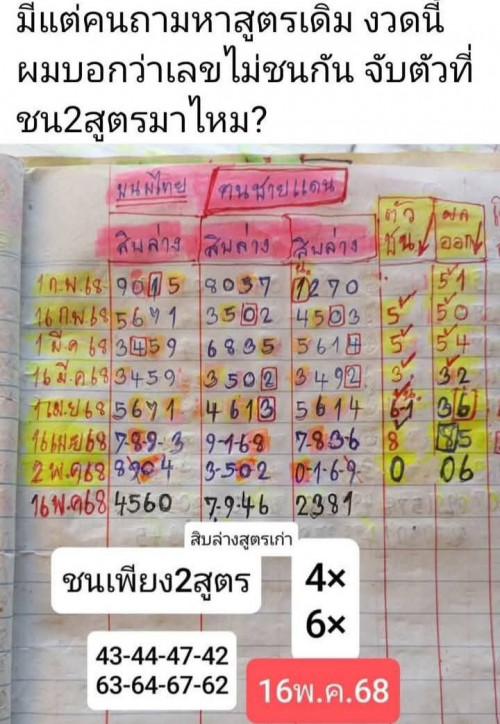 มีแต่คนถามหาสูตรเดิม งวดนี้
ผมบอกว่าเลขไม่ชนกัน จับตัวที่
ชน2สูตรมาไหม?
คนชายแดน
ตัว ผล
สิบล่าง สิบล่าง สิบล่าง ชน ออก
1 ก.พ.68 9015 8037 1270 51
16 ก.พ.68 5671 3502 4503 5 50
1 มี.ค 68 3459 6835 5614 5 54
16 มี.ค 68 3459 3502 3492 3 32
1 เม.ย 68 5671 4613 5614 61 36
16 เม.ย 68 7-8-9-3 9-1-6-8 7-8-3-6 8 85
2 พ.ค 68 8904 3-502 0-1-6-9 0 06
16 พ.ค 68 4560 7-9-46 2381
สิบล่างสูตรเก่า
ชนเพียง2สูตร
4×
6×
43-44-47-42
63-64-67-62
16พ.ค.68